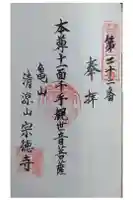 第二十三番
奉拝
本尊十一面千手観世音菩薩
亀山
清涼山 宗徳寺